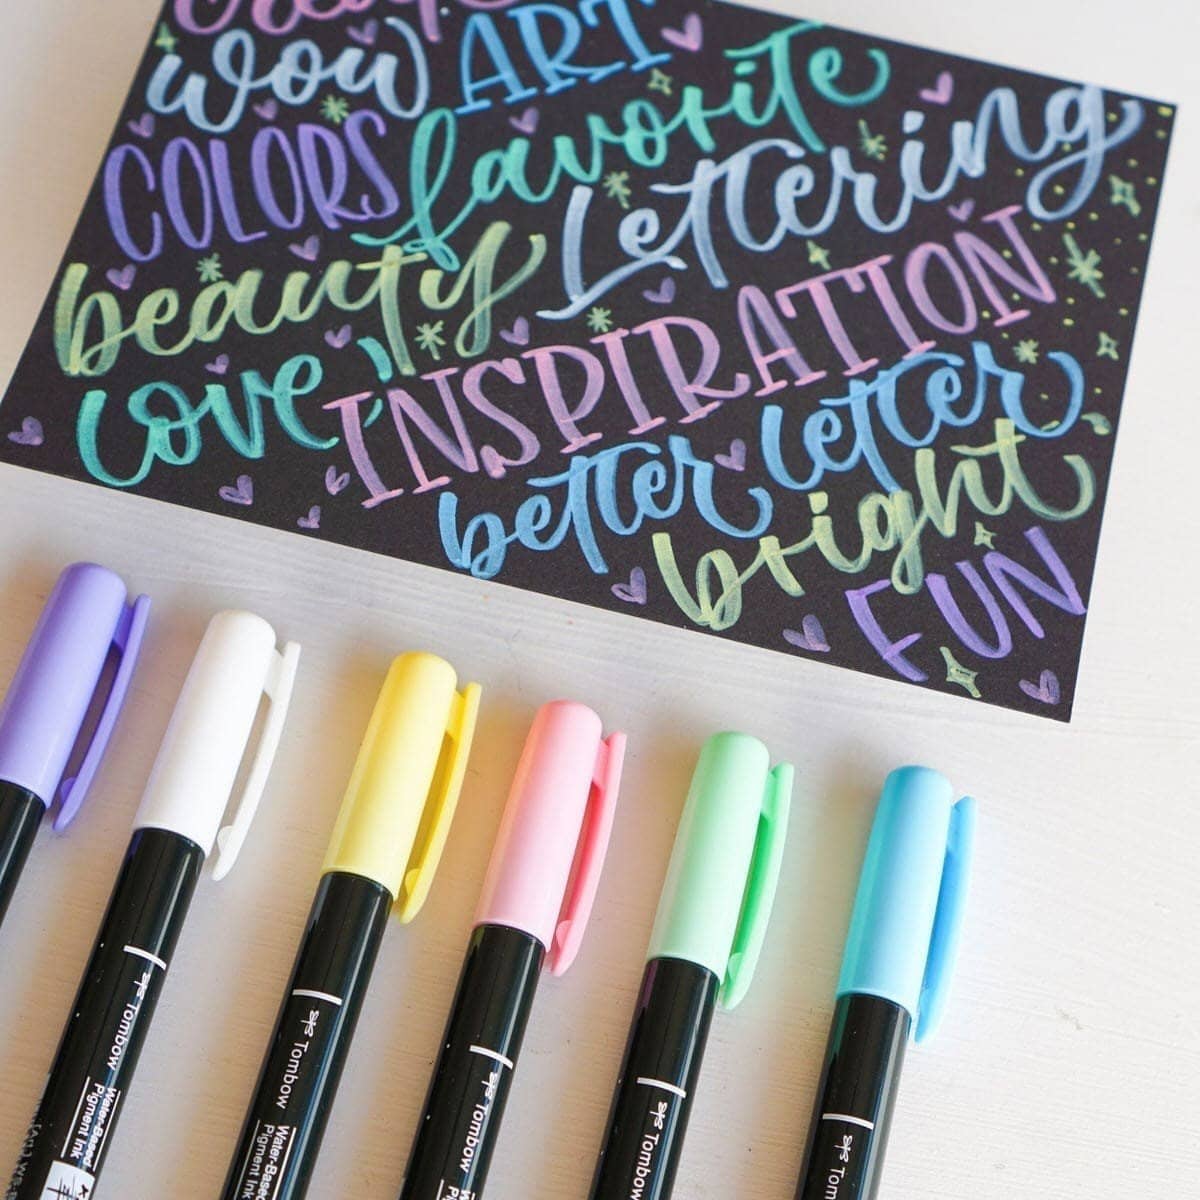 wow ART
COLORS favorite
beauty Lettering
love, INSPIRATION
better letter
bright
FUN
Tombow Water-Based
Pigment Ink
Tombow Water-Based
Pigment Ink
Tombow
Tombow
Tom